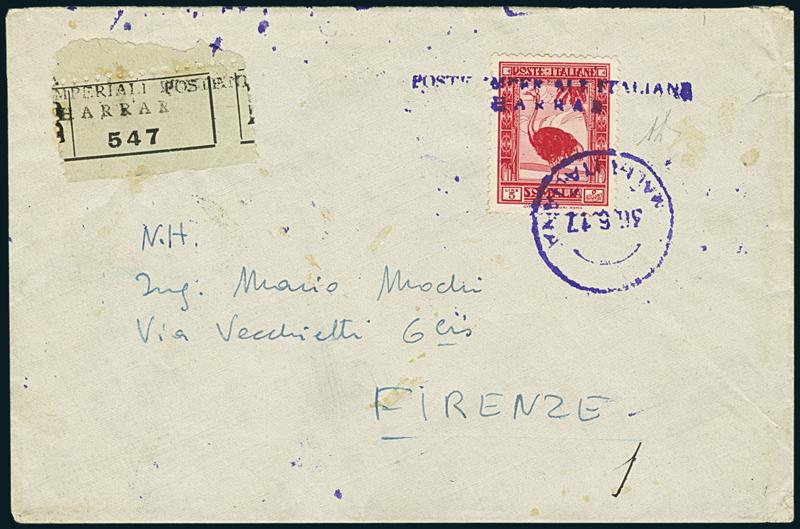 MPERIALI POSTALI
HARRAR
547
POSTE IMPERIALI ITALIANE
HARRAR
POSTE ITALIANE
5
SOMALIA
36.5.17
N.H.
Ing. Mario Modii
Via Vecchietti 6 bis
FIRENZE